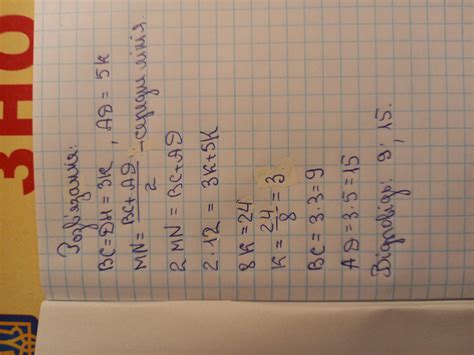 ЗНО
Розв'язання:
BC=DH=3к, AD=5к
MN= BC+AD/2 -середня лінія.
2MN=BC+AD
2·12=3к+5к
8к=24
к=24/8=3
BC=3·3=9
AD=3·5=15
Відповідь: 9; 15.